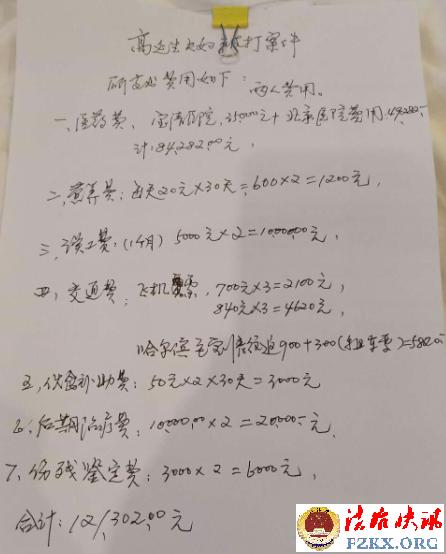 高延生夫妇被打案件
所支出费用如下:
两人费用。
一、医药费、宝清医院,35000元+北京医院费用:49282元
计:84282.00元,
二、营养费:每天20元×30天=600×2=1200元,
三、误工费:(1个月)5000元×2=10,000.00元,
四、交通费:飞机票,700元×3=2100元,
840元×3=4620元,
哈尔滨至宝清往返900+300(租车费)=5820元
五、伙食补助费:50元×2×30天=3000元
6、后期治疗费:10,000.00×2=20,000元,
7、伤残鉴定费:3000×2=6000元,
合计:121,302.00元
法治快讯
FZKX.ORG